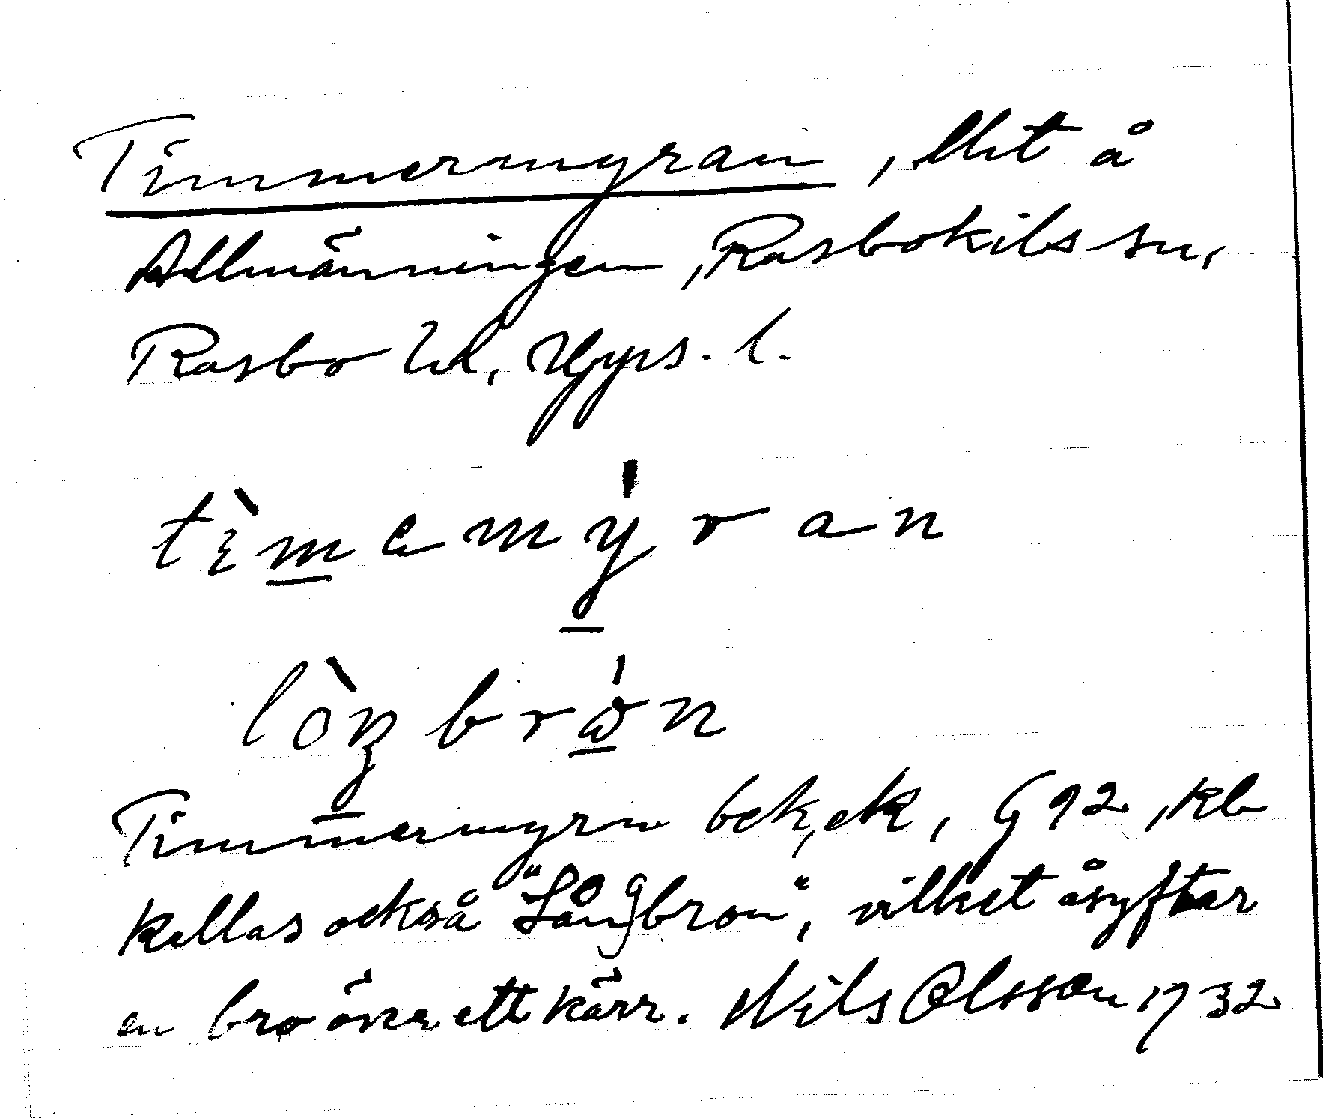 Timmermyran, lht å
Allmänningen, Rasbokils sn,
Rasbo hd, Upps. l.
tìmemýran
lòŋbrón
Timmermyrn bek, ek, G 92, kb
kallas också "Långbron", vilket åsyftar
en bro över ett kärr. Nils Olsson 1932